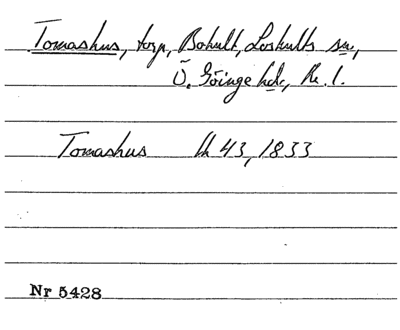 Tomashus, torp, Bohult, Loshults sn,
Ö. Göinge hd, Kr. l.
Tomashus lk 43, 1833
Nr 5428